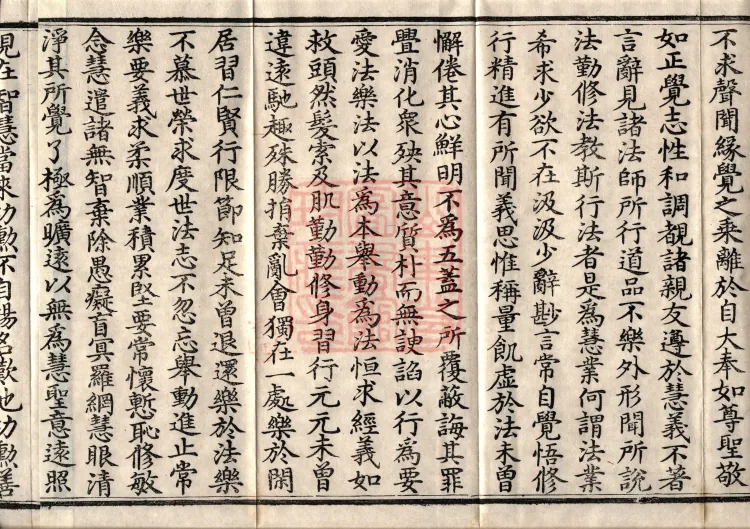 不求聲聞緣覺之乘離於自大奉如尊聖敬
如正覺志性和調覩諸親友遵於慧義不著
言辭見諸法師所行道品不樂外形聞所說
法勤修法教斯行法者是為慧業何謂法業
希求少欲不在汲汲少辭尠言常自覺悟修
行精進有所聞義思惟稱量飢虛於法未曾
懈倦其心鮮明不為五蓋之所覆蔽誨其罪
舋消化眾殃其意質朴而無諛諂以行為要
愛法樂法以法為本舉動為法恒求經義如
救頭然髮索及肌勤勤修身習行元元未曾
違遠馳趣殊勝捐棄亂會獨在一處樂於閑
居習仁賢行限節知足未曾退還樂於法樂
不慕世榮求度世法志不忽忘舉動進止常
樂要義求柔順業積累堅要常懷慙恥修敏
念慧遣諸無智棄除愚癡盲冥羅網慧眼清
淨其所覺了極為曠遠以無為慧聖意遠照
現在智慧當來功勳不自揚名歎他功勳善